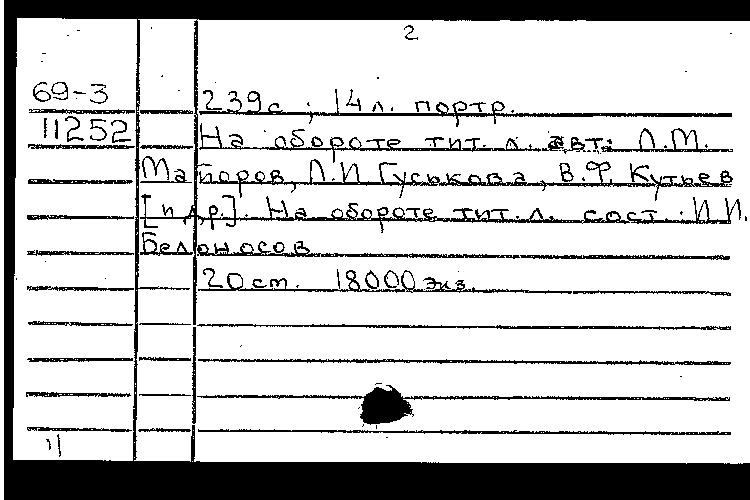 2
69-3 239с ; 14л. портр.
11252 На обороте тит. л. авт: Л.М.
Майоров, Л.И Гуськова, В.Ф. Кутьев
[и др.]. На обороте тит. л. сост.: И.И.
Белоносов
20см. 18000 экз.